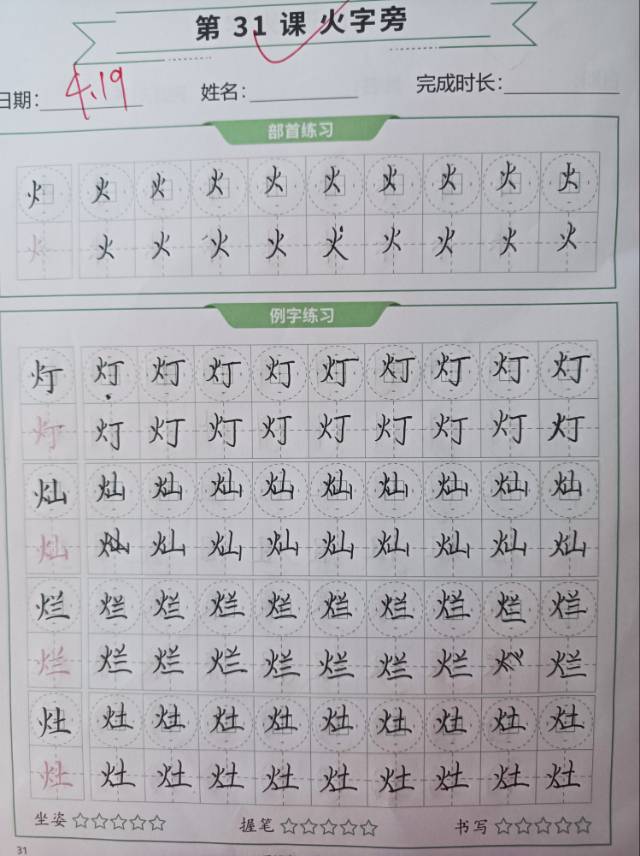 第 31 课 火字旁
日期: 4.19 姓名: 完成时长:
部首练习
火 火 火 火 火 火 火 火 火 火
火 火 火 火 火 火 火 火 火 火
例字练习
灯 灯 灯 灯 灯 灯 灯 灯 灯 灯
灯 灯 灯 灯 灯 灯 灯 灯 灯 灯
灿 灿 灿 灿 灿 灿 灿 灿 灿 灿
灿 灿 灿 灿 灿 灿 灿 灿 灿 灿
烂 烂 烂 烂 烂 烂 烂 烂 烂 烂
烂 烂 烂 烂 烂 烂 烂 烂 烂
灶 灶 灶 灶 灶 灶 灶 灶 灶 灶
灶 灶 灶 灶 灶 灶 灶 灶 灶 灶
坐姿☆☆☆☆☆ 握笔☆☆☆☆☆ 书写☆☆☆☆☆
31